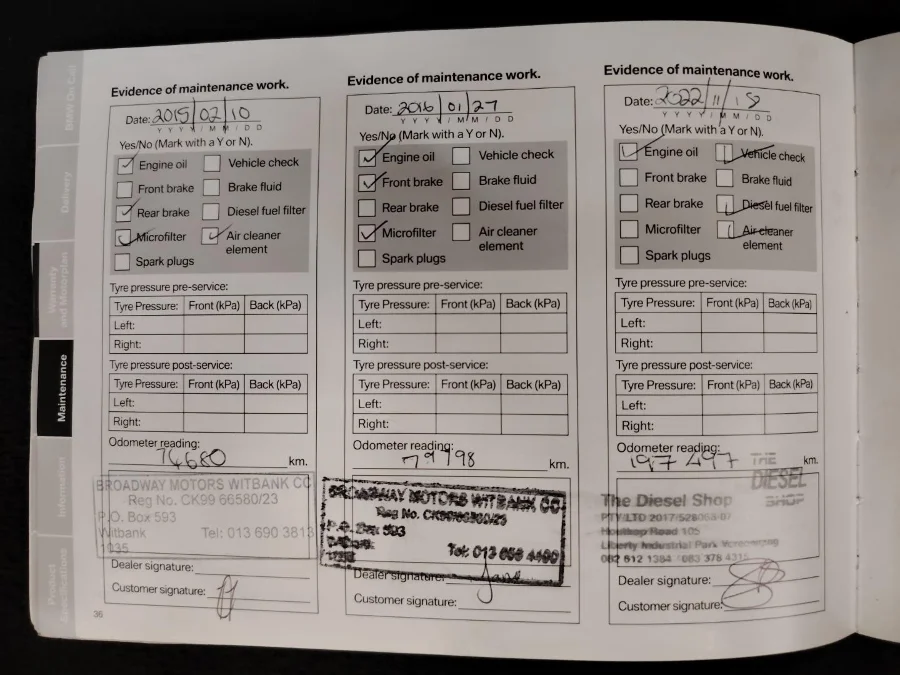 BMW On Call
Delivery
Warranty
and Motorplan
Maintenance
Information
Product
Specifications
Evidence of maintenance work.
Date: 2015/02/10
Y Y Y Y / M M / D D
Yes/No (Mark with a Y or N).
Engine oil Vehicle check
Front brake Brake fluid
Rear brake Diesel fuel filter
Microfilter Air cleaner
element
Spark plugs
Tyre pressure pre-service:
Tyre Pressure: Front (kPa) Back (kPa)
Left:
Right:
Tyre pressure post-service:
Tyre Pressure: Front (kPa) Back (kPa)
Left:
Right:
Odometer reading:
74680 km.
BROADWAY MOTORS WITBANK CC
Reg No. CK99 66580/23
P.O. Box 593
Witbank Tel: 013 690 3813
1035
Dealer signature:
Customer signature:
36
Evidence of maintenance work.
Date: 2016/01/27
Y Y Y Y / M M / D D
Yes/No (Mark with a Y or N).
Engine oil Vehicle check
Front brake Brake fluid
Rear brake Diesel fuel filter
Microfilter Air cleaner
element
Spark plugs
Tyre pressure pre-service:
Tyre Pressure: Front (kPa) Back (kPa)
Left:
Right:
Tyre pressure post-service:
Tyre Pressure: Front (kPa) Back (kPa)
Left:
Right:
Odometer reading:
79798 km.
BROADWAY MOTORS WITBANK CC
Reg No. CK99/66580/23
P.O. Box 593
Tel: 013 656 4490
Dealer signature: Jane
Customer signature:
Evidence of maintenance work.
Date: 2022/11/18
Y Y Y Y / M M / D D
Yes/No (Mark with a Y or N).
Engine oil Vehicle check
Front brake Brake fluid
Rear brake Diesel fuel filter
Microfilter Air cleaner
element
Spark plugs
Tyre pressure pre-service:
Tyre Pressure: Front (kPa) Back (kPa)
Left:
Right:
Tyre pressure post-service:
Tyre Pressure: Front (kPa) Back (kPa)
Left:
Right:
Odometer reading:
197 497 km.
THE
DIESEL
SHOP
The Diesel Shop
PTY LTD 2017/528068/07
Houtkop Road 105
Liberty Industrial Park Vereeniging
082 612 1384 / 083 378 4315
Dealer signature:
Customer signature: